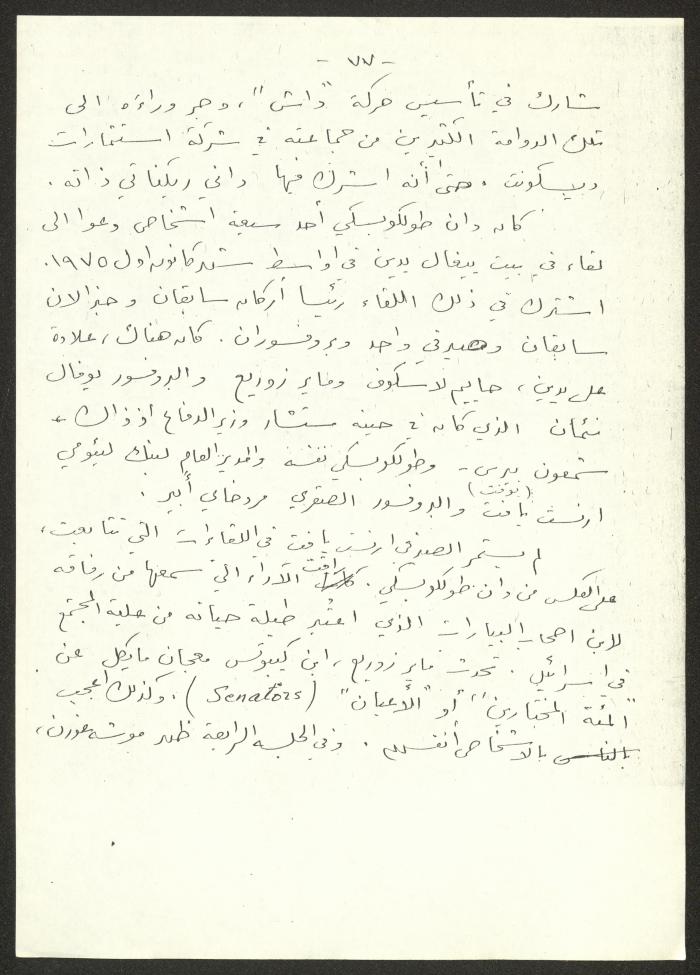 - ٧٧ -
شارك في تأسيس حركة "داش"، وجر وراءه الى
تلك الدوامة الكثيرين من جماعته في شركة استثمارات
ديسكونت. حتى أنه اشترك فيها داني ريكناتي ذاته.
كان دان طولكوبسكي أحد سبعة اشخاص دعوا الى
لقاء في بيت ييغال يدين في اواسط شهر كانون اول ١٩٧٥.
اشترك في ذلك اللقاء رئيسا أركان سابقان وجنرالان
سابقان وصيرفي واحد وبروفسوران. كان هناك، علاوة
على يدين، حاييم لاسكوف ومئير زوريع والبروفسور يوفال
نئمان الذي كان في حينه مستشار وزير الدفاع اذ ذاك -
شمعون بيرس - وطولكوبسكي نفسه والمدير العام لبنك ليئومي
(نوفت)
ارنست يافت والبروفسور الصقري مردخاي أبير.
لم يستمر الصيرفي ارنست يافت في اللقاءات التي تتابعت،
على العكس من دان طولكوبسكي. راقت الآراء التي سمعها من رفاقه
لابن اصحاب البيارات الذي اعتبر طيلة حياته من علية المجتمع
في اسرائيل. تحدث مئير زوريع، ابن كيبوتس معجان مايكل عن
"المئة المختارين" أو "الأعيان" (Senators). وكذلك اعجب
بالناس بالاشخاص أنفسهم. وفي الجلسة الرابعة ظهر موشه غورن،